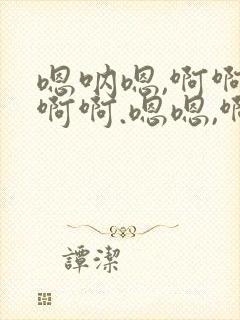 嗯呐嗯,啊啊
啊啊.嗯嗯,啊
譚潔